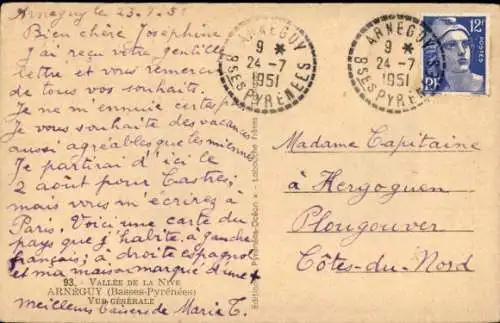 Arneguy le 23.7.51
Bien chère Joséphine
J'ai reçu votre gentille
lettre et vous remercie
de tous vos souhaits.
Je ne m'ennuie certes pas
Je vous souhaite des vacances
aussi agréables que les miennes
Je partirai d'ici le
2 août pour Castres,
mais vous m'écrirez à
Paris. Voici une carte du
pays que j'habite, à gauche
français, à droite espagnol
et ma maison marqué d'une +
93. - VALLÉE DE LA NIVE
ARNÉGUY (Basses-Pyrénées)
VUE GÉNÉRALE
meilleurs baisers de Marie T.
Pyrénées-Océan - Labouche Frères
ARNEGUY
9 *
24-7
1951
BSES PYRENEES
ARNEGUY
9 *
24-7
1951
BSES PYRENEES
12F
Madame Capitaine
à Kergoguen
Plougouver
Côtes-du-Nord